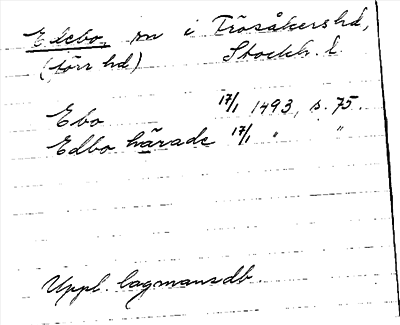 Edebo, sn i Frösåkers hd,
(förr hd) Stockh. l
Ebo 17/1 1493, s. 75.
Edbo härade 17/1 " "
Uppl. lagmansdb.